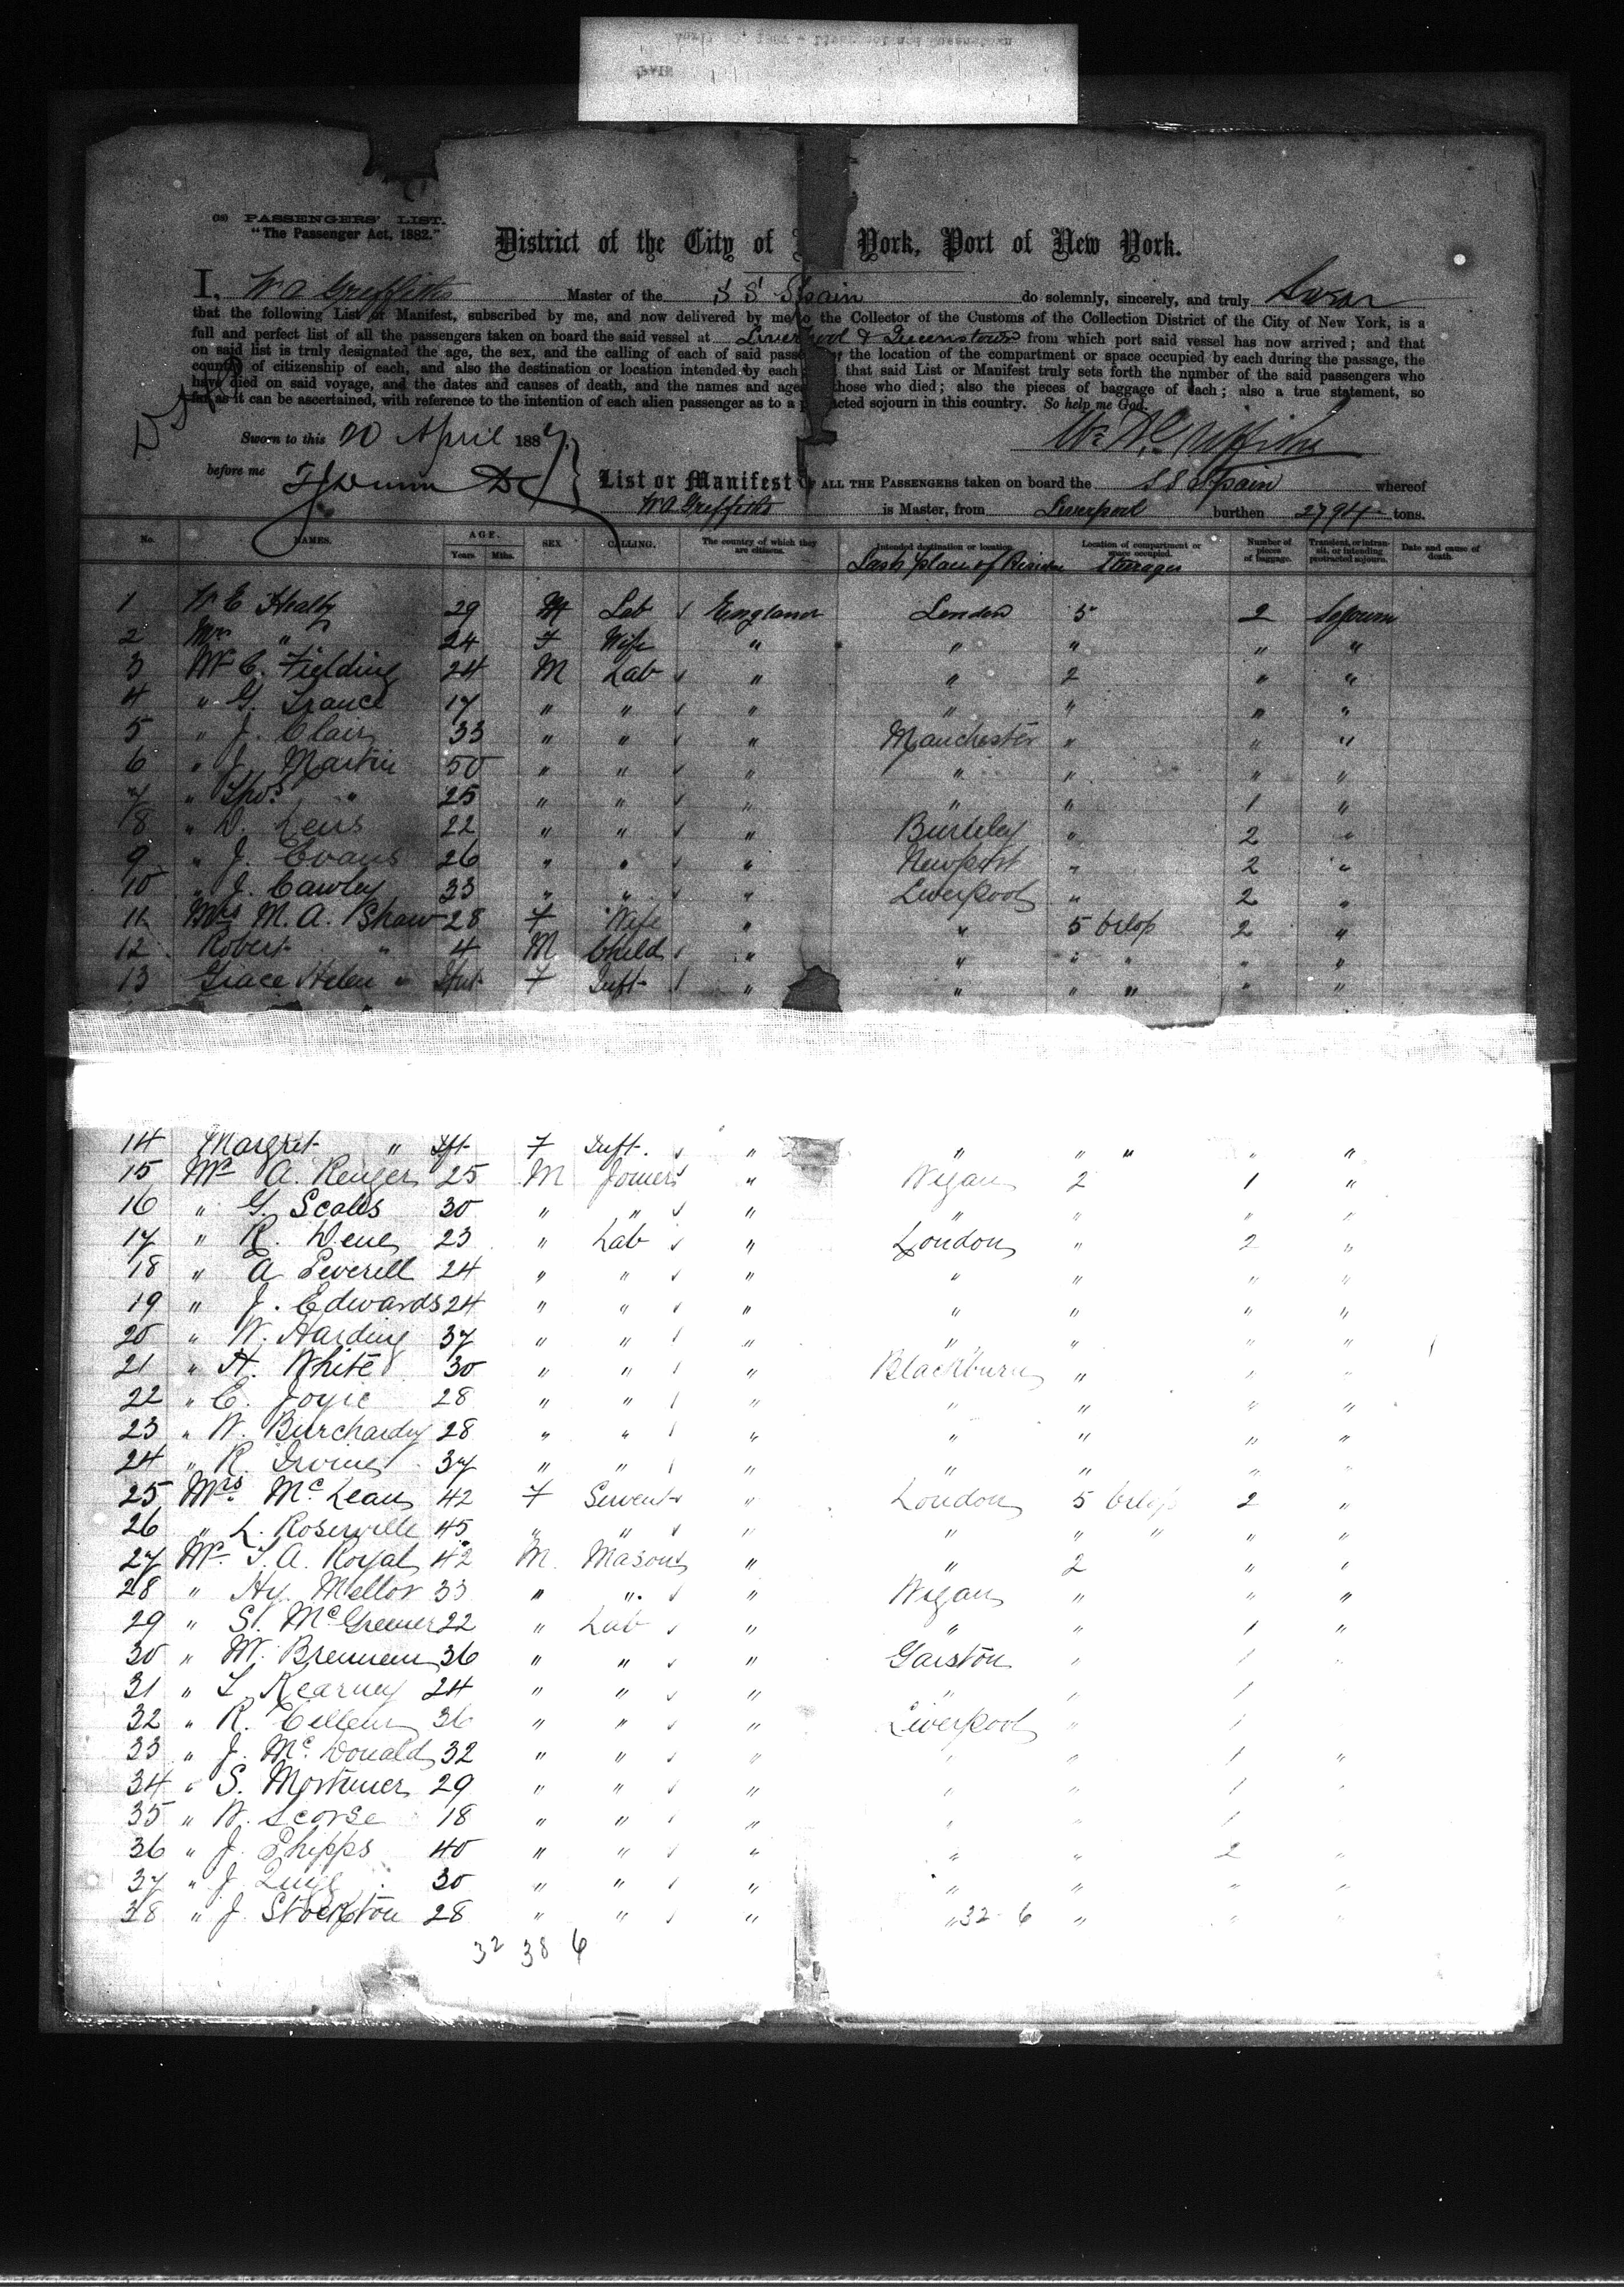 (18) PASSENGERS' LIST.
"The Passenger Act, 1882."
District of the City of York, Port of New York.
I, W A Griffiths Master of the S S Spain do solemnly, sincerely, and truly Swear
that the following List or Manifest, subscribed by me, and now delivered by me to the Collector of the Customs of the Collection District of the City of New York, is a
full and perfect list of all the passengers taken on board the said vessel at Liverpool & Queenstown from which port said vessel has now arrived; and that
on said list is truly designated the age, the sex, and the calling of each of said the location of the compartment or space occupied by each during the passage, the
country of citizenship of each, and also the destination or location intended by each that said List or Manifest truly sets forth the number of the said passengers who
have died on said voyage, and the dates and causes of death, and the names and those who died; also the pieces of baggage of each; also a true statement, so
far as it can be ascertained, with reference to the intention of each alien passenger as to a sojourn in this country. So help me God.
Sworn to this 20 April 1887
before me
List or Manifest OF ALL THE PASSENGERS taken on board the S S Spain whereof
W A Griffiths is Master, from Liverpool burthen 2794 tons.
No. NAMES. AGE. Years Mths. SEX CALLING. The country of which they are citizens. Intended destination or location. Location of compartment or space occupied. Number of pieces of baggage. Transient, or in transit, or intending protracted sojourn. Date and cause of death.
Last place of Steerage
1 W E Healy 29 M Lab England London 5 2 Sojourn
2 Mrs " 24 F Wife " " " " "
3 Mr C. Fielding 24 M Lab " " 2 " "
4 " G. France 17 " " " " " " "
5 " J. Clair 33 " " " Manchester " " "
6 " J. Martin 50 " " " " " " "
7 " Thos " 25 " " " " " 1 "
8 " D. 22 " " " Burnley " 2 "
9 " J. Evans 26 " " " Newport " 2 "
10 " J. Cawley 33 " " " Liverpool " 2 "
11 Mrs M. A. Shaw 28 F Wife " " 5 orlop 2 "
12 Robert " 4 M Child " " " " " "
13 Grace Helen " Inft F Inft " " " " " "
14 Margret " Ift F Inft. " " " " " "
15 Mr A. 25 M Joiner " Wigan 2 1 "
16 " G. Scales 30 " " " " " " "
17 " R. 23 " Lab " London " 2 "
18 " A Peverell 24 " " " " " " "
19 " J. Edwards 24 " " " " " " "
20 " W. Harding 37 " " " " " " "
21 " H. White 30 " " " Blackburn " " "
22 " E. Joyce 28 " " " " " " "
23 " W. 28 " " " " " " "
24 " R. Irvine 37 " " " " " " "
25 Mrs. McLean 42 F Servent " London 5 orlop 2 "
26 " L. Roserville 45 " " " " " " " "
27 Mr. T. A. Royal 42 M. Mason " " 2 " "
28 " Hy. Mellor 33 " " " Wigan " " "
29 " St. 22 " Lab " " " 1 "
30 " W. Brennen 36 " " " Garston " 1
31 " T Kearney 24 " " " " " 1
32 " R. 36 " " " Liverpool " 1
33 " J. McDonald 32 " " " " " 1 "
34 " S. Mortimer 29 " " " " " 1 "
35 " W. Scorse 18 " " " " " 1 "
36 " J. Phipps 40 " " " " " 2 "
37 " J. 30 " " " " " " "
38 " J. Stockton 28 " " " " 32 6 " " "
32 38 6